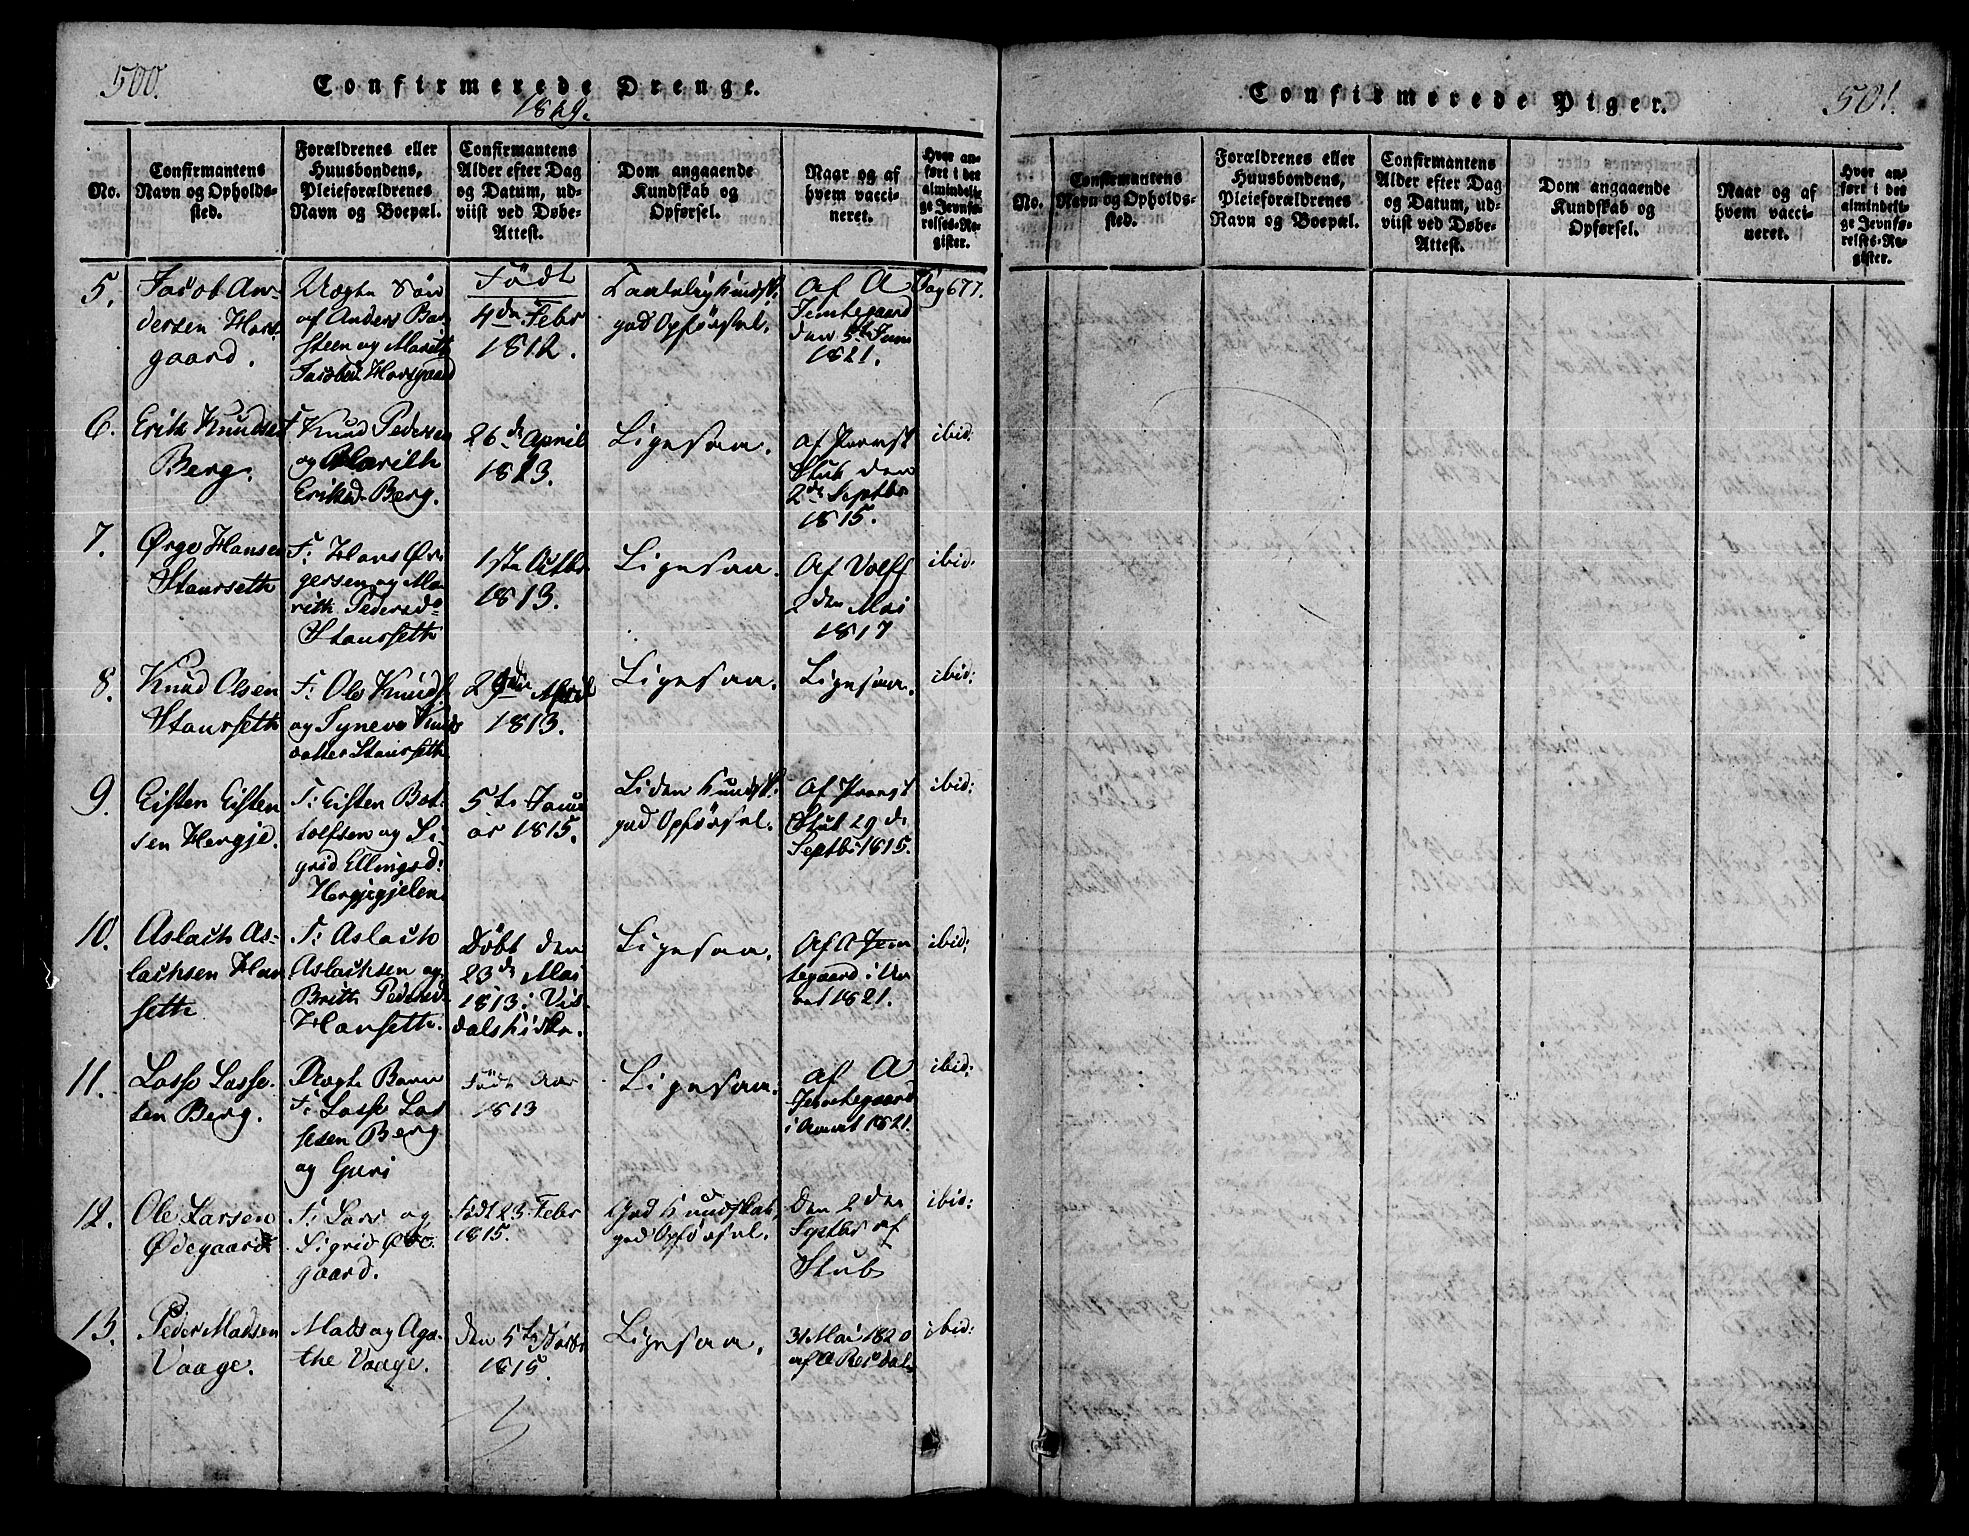 500.
Confirmerede Drenge.
1829.
No.
Confirmantens
Navn og Opholds-
sted.
Forældrenes eller
Huusbondens,
Pleieforældrenes
Navn og Boepæl.
Confirmantens
Alder efter Dag
og Datum, ud-
viist ved Døbe-
Attest.
Dom angaaende
Kundskab og
Opførsel.
Naar og af
hvem vacci-
neret.
Hvor an-
ført i det
almindeli-
ge Jevnfø-
relses-Re-
gister.
5.
Jacob An-
dersen Hors
gaard.
Uægte Søn
af Anders Bor
steen og Marith
Jacobsd Horsgaard
Født
4de Febr
1812.
Taalelig Kundsk:
god Opførsel.
af A
Jemtegaard
den 5te Juni
1821.
Pag 677.
6.
Erik Knudsen
Berg.
F Knud Pedersen
og Marith
Eriksd Berg.
26de April
1813.
Ligesaa.
af Provst
Stub den
2de Septbr
1815.
ibid.
7.
Ørge Hansen
Staurseth
F: Hans Ør
gersen og Ma
rith Pedersdo
Staurseth
1ste Octbr
1813.
Ligesaa.
Af Wolff
2den Mai
1817
ibid.
8.
Knud Olsen
Staurseth
F: Ole Knuds
og Syneva Knuds
datter Staurseth
April
1813.
Ligesaa.
Ligesaa.
ibid:
9.
Eisten Eisten
sen Hergje.
F: Eisten Bot
tolfsen og Si
grid Ellingsd:
Hergjegjelen
5te Janu
ar 1815.
Liden Kundsk:
god Opførsel.
Af Provst
Stub 29de
Septbr 1815.
ibid:
10.
Aslach As-
lachsen Han
seth
F: Aslach
Aslachsen og
Brith Pedersd
Hanseth.
Døbt den
23de Mai
1813 i Vis
dals Kirke.
Ligesaa.
Af A Jem
tegaard i Aa
ret 1821.
ibid:
11.
Lasse Lasse-
sen Berg.
Uægte Barn
F: Lasse Las
sesen Berg
og Guri
Født Aar
1813
Ligesaa.
af A
Jemtegaard
i Aaret 1821.
ibid:
12.
Ole Larsen
Ødegaard
F: Lars og
Sigrid Øde
gaard.
Født 23 Febr
1815.
God Kundskab,
god Opførsel.
Den 2den
Septbr af
Stub
ibid:
13.
Peder Madsen
Vaage.
Mads og Aga
the Vaage.
den 5te
1815.
Ligesaa.
31 Mai 1820
af
ibid:
Confirmerede Piger.
501.
No.
Confirmantens
Navn og Opholds-
sted.
Forældrenes eller
Huusbondens,
Pleieforældrenes
Navn og Boepæl.
Confirmantens
Alder efter Dag
og Datum, ud-
viist ved Døbe-
Attest.
Dom angaaende
Kundskab og
Opførsel.
Naar og af
hvem vacci-
neret.
Hvor an-
ført i det
almindeli-
ge Jevnfø-
relses-Re-
gister.